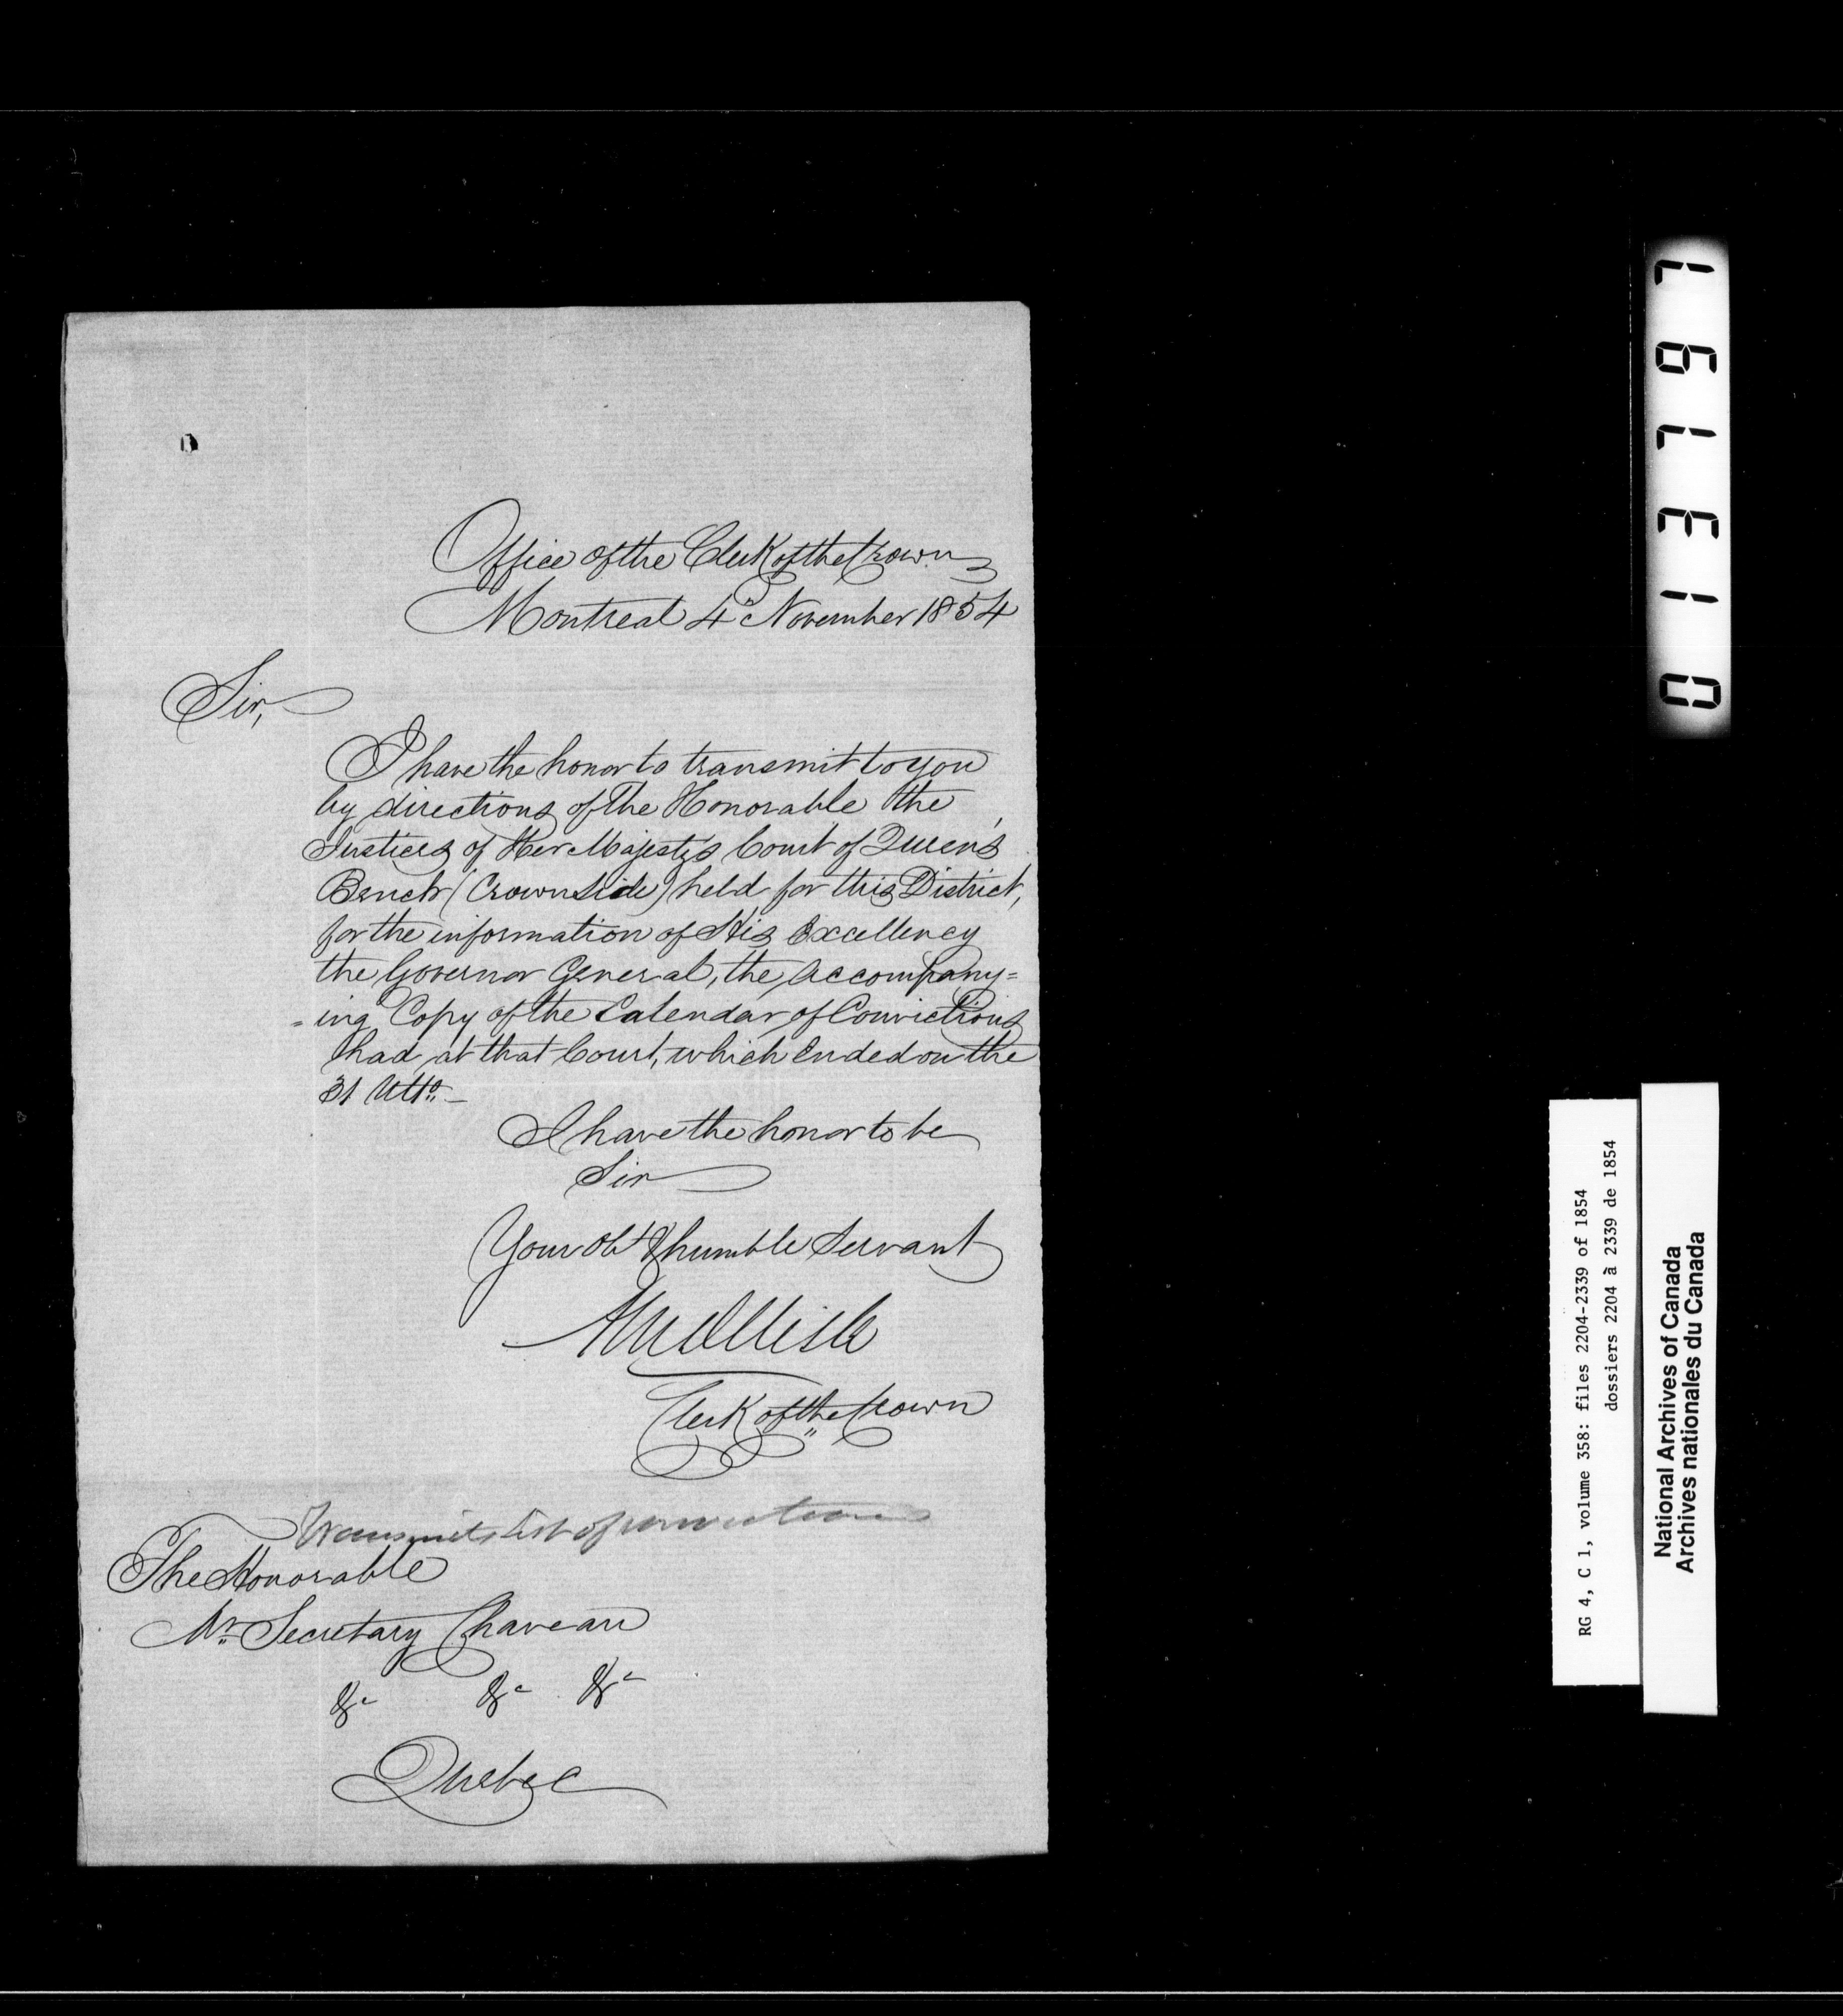 Office of the Clerk of the Crown
Montreal 4th November 1854
Sir,
I have the honor to transmit to you
by directions of the Honorable the
Justices of Her Majesty's Court of Queen's
Bench (Crown Side) held for this District,
for the information of His Excellency
the Governor General, the accompany=
=ing Copy of the Calendar of Convictions
had at that Court, which ended on the
31 Ulto. —
I have the honor to be
Sir
Your Obt & humble Servant
Clerk of the Crown
Transmits list of convictions
The Honorable
Mr. Secretary Chaveau
&c &c &c
Quebec
013197
RG 4, C 1, volume 358: files 2204-2339 of 1854
dossiers 2204 à 2339 de 1854
National Archives of Canada
Archives nationales du Canada